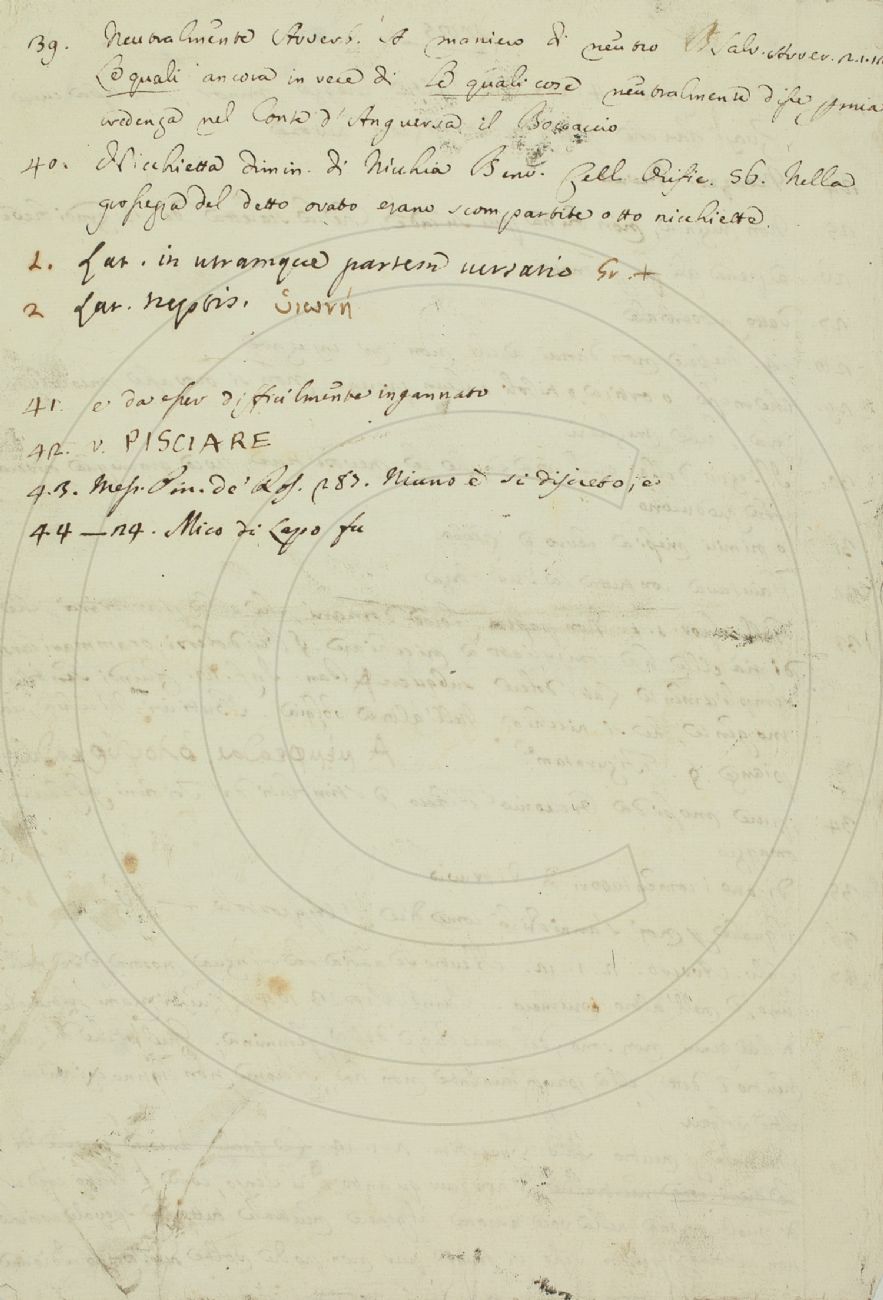 39. Neutralmente Avverb. A maniera di neutro Salv. Avver. 2. 1. 12
Le quali ancora in vece di Le quali cose neutralmente disse p mia
credenza nel Conte d'Anguersa il Boccaccio
40. Nicchietta dimin. di Nicchia Benv. Cell. Orific. 56. Nella
grossezza del detto ovato erano scompartite otto nicchiette.
1. Lat. in utramque partem versatio Gr. +
2 Lat. neptis. ὑιωνή
41. e da esser difficilmente ingannato
42. v. PISCIARE
43. Mess. Cin. de' Ros. 287. Niuno è si discreto, e
44 — 24. Mico di Lapo fu